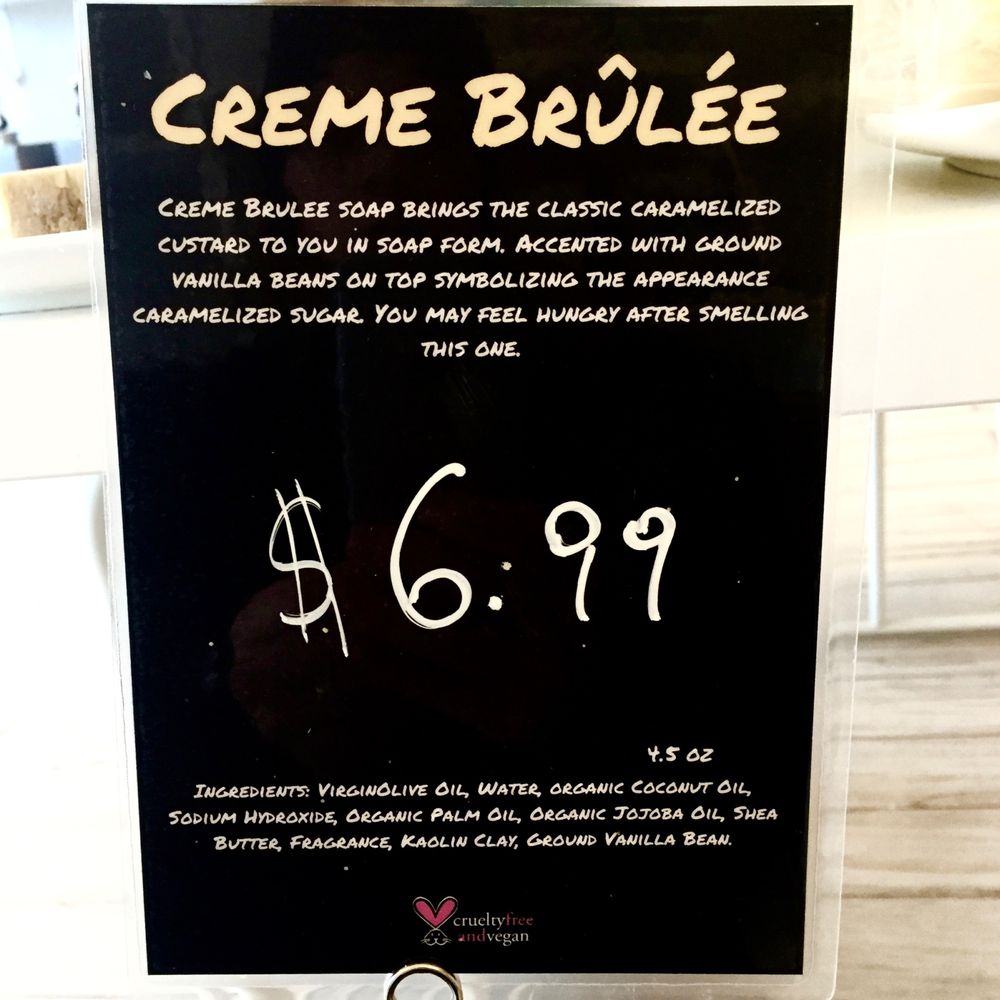 CREME BRÛLÉE
CREME BRULEE SOAP BRINGS THE CLASSIC CARAMELIZED
CUSTARD TO YOU IN SOAP FORM. ACCENTED WITH GROUND
VANILLA BEANS ON TOP SYMBOLIZING THE APPEARANCE
CARAMELIZED SUGAR. YOU MAY FEEL HUNGRY AFTER SMELLING
THIS ONE.
$6.99
4.5 OZ
INGREDIENTS: VIRGINOLIVE OIL, WATER, ORGANIC COCONUT OIL,
SODIUM HYDROXIDE, ORGANIC PALM OIL, ORGANIC JOJOBA OIL, SHEA
BUTTER, FRAGRANCE, KAOLIN CLAY, GROUND VANILLA BEAN.
crueltyfree
andvegan